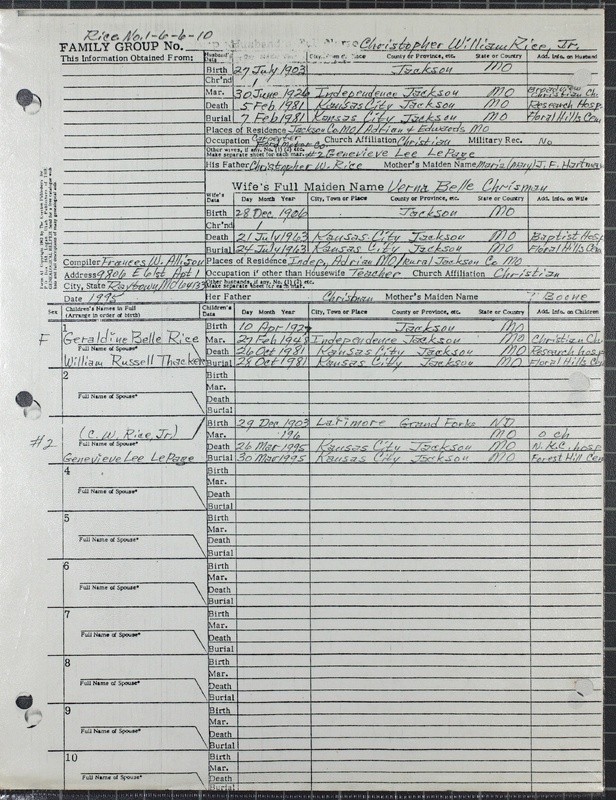 Rice No. 1-6-6-10
FAMILY GROUP No. Husband's Full Name Christopher William Rice, Jr.
This Information Obtained From:
Husband's Data Day Month Year City, Town or Place County or Province, etc. State or Country Add. Info. on Husband
Birth 27 July 1903 Jackson MO
Chr'nd
Mar. 30 June 1926 Independence Jackson MO Broadview Christian Ch
Death 5 Feb 1981 Kansas City Jackson MO Research Hosp
Burial 7 Feb 1981 Kansas City Jackson MO Floral Hills Cem
Places of Residence Jackson Co MO/ Adrian & Edwards MO
Occupation Carpenter Ford Motor Co Church Affiliation Christian Military Rec. No
Other wives, if any. No. (1) (2) etc. Make separate sheet for each mar. #2 Genevieve Lee LePage
His Father Christopher W. Rice Mother's Maiden Name Maria (Mary) J. F. Hartman
Wife's Full Maiden Name Verna Belle Chrisman
Wife's Data Day Month Year City, Town or Place County or Province, etc. State or Country Add. Info. on Wife
Birth 28 Dec 1906 Jackson MO
Chr'nd
Death 21 July 1963 Kansas City Jackson MO Baptist Hosp
Burial 24 July 1963 Kansas City Jackson MO Floral Hills Cem
Compiler Frances W. Allison Places of Residence Indep, Adrian MO/ rural Jackson Co MO
Address 9806 E 61st Apt 1 Occupation if other than Housewife Teacher Church Affiliation Christian
City, State Raytown MO 64133 Other husbands, if any. No. (1) (2) etc. Make separate sheet for each mar.
Date 1995 Her Father Chrisman Mother's Maiden Name ? Boone
Sex Children's Names in Full (Arrange in order of birth) Children's Data Day Month Year City, Town or Place County or Province, etc. State or Country Add. Info. on Children
1 Birth 10 Apr 1927 Jackson MO
F Geraldine Belle Rice Mar. 29 Feb 1948 Independence Jackson MO Christian Ch
Full Name of Spouse* Death 26 Oct 1981 Kansas City Jackson MO Research hosp
William Russell Thacker Burial 28 Oct 1981 Kansas City Jackson MO Floral Hills Cem
2 Birth
Mar.
Full Name of Spouse* Death
Burial
Birth 29 Dec 1903 Larimore Grand Forks ND
#2 (C. W. Rice, Jr) Mar. 196 MO och
Full Name of Spouse* Death 26 Mar 1995 Kansas City Jackson MO N.K.C. hosp
Genevieve Lee LePage Burial 30 Mar 1995 Kansas City Jackson MO Forest Hill Cem
4 Birth
Mar.
Full Name of Spouse* Death
Burial
5 Birth
Mar.
Full Name of Spouse* Death
Burial
6 Birth
Mar.
Full Name of Spouse* Death
Burial
7 Birth
Mar.
Full Name of Spouse* Death
Burial
8 Birth
Mar.
Full Name of Spouse* Death
Burial
9 Birth
Mar.
Full Name of Spouse* Death
Burial
10 Birth
Mar.
Full Name of Spouse* Death
Burial